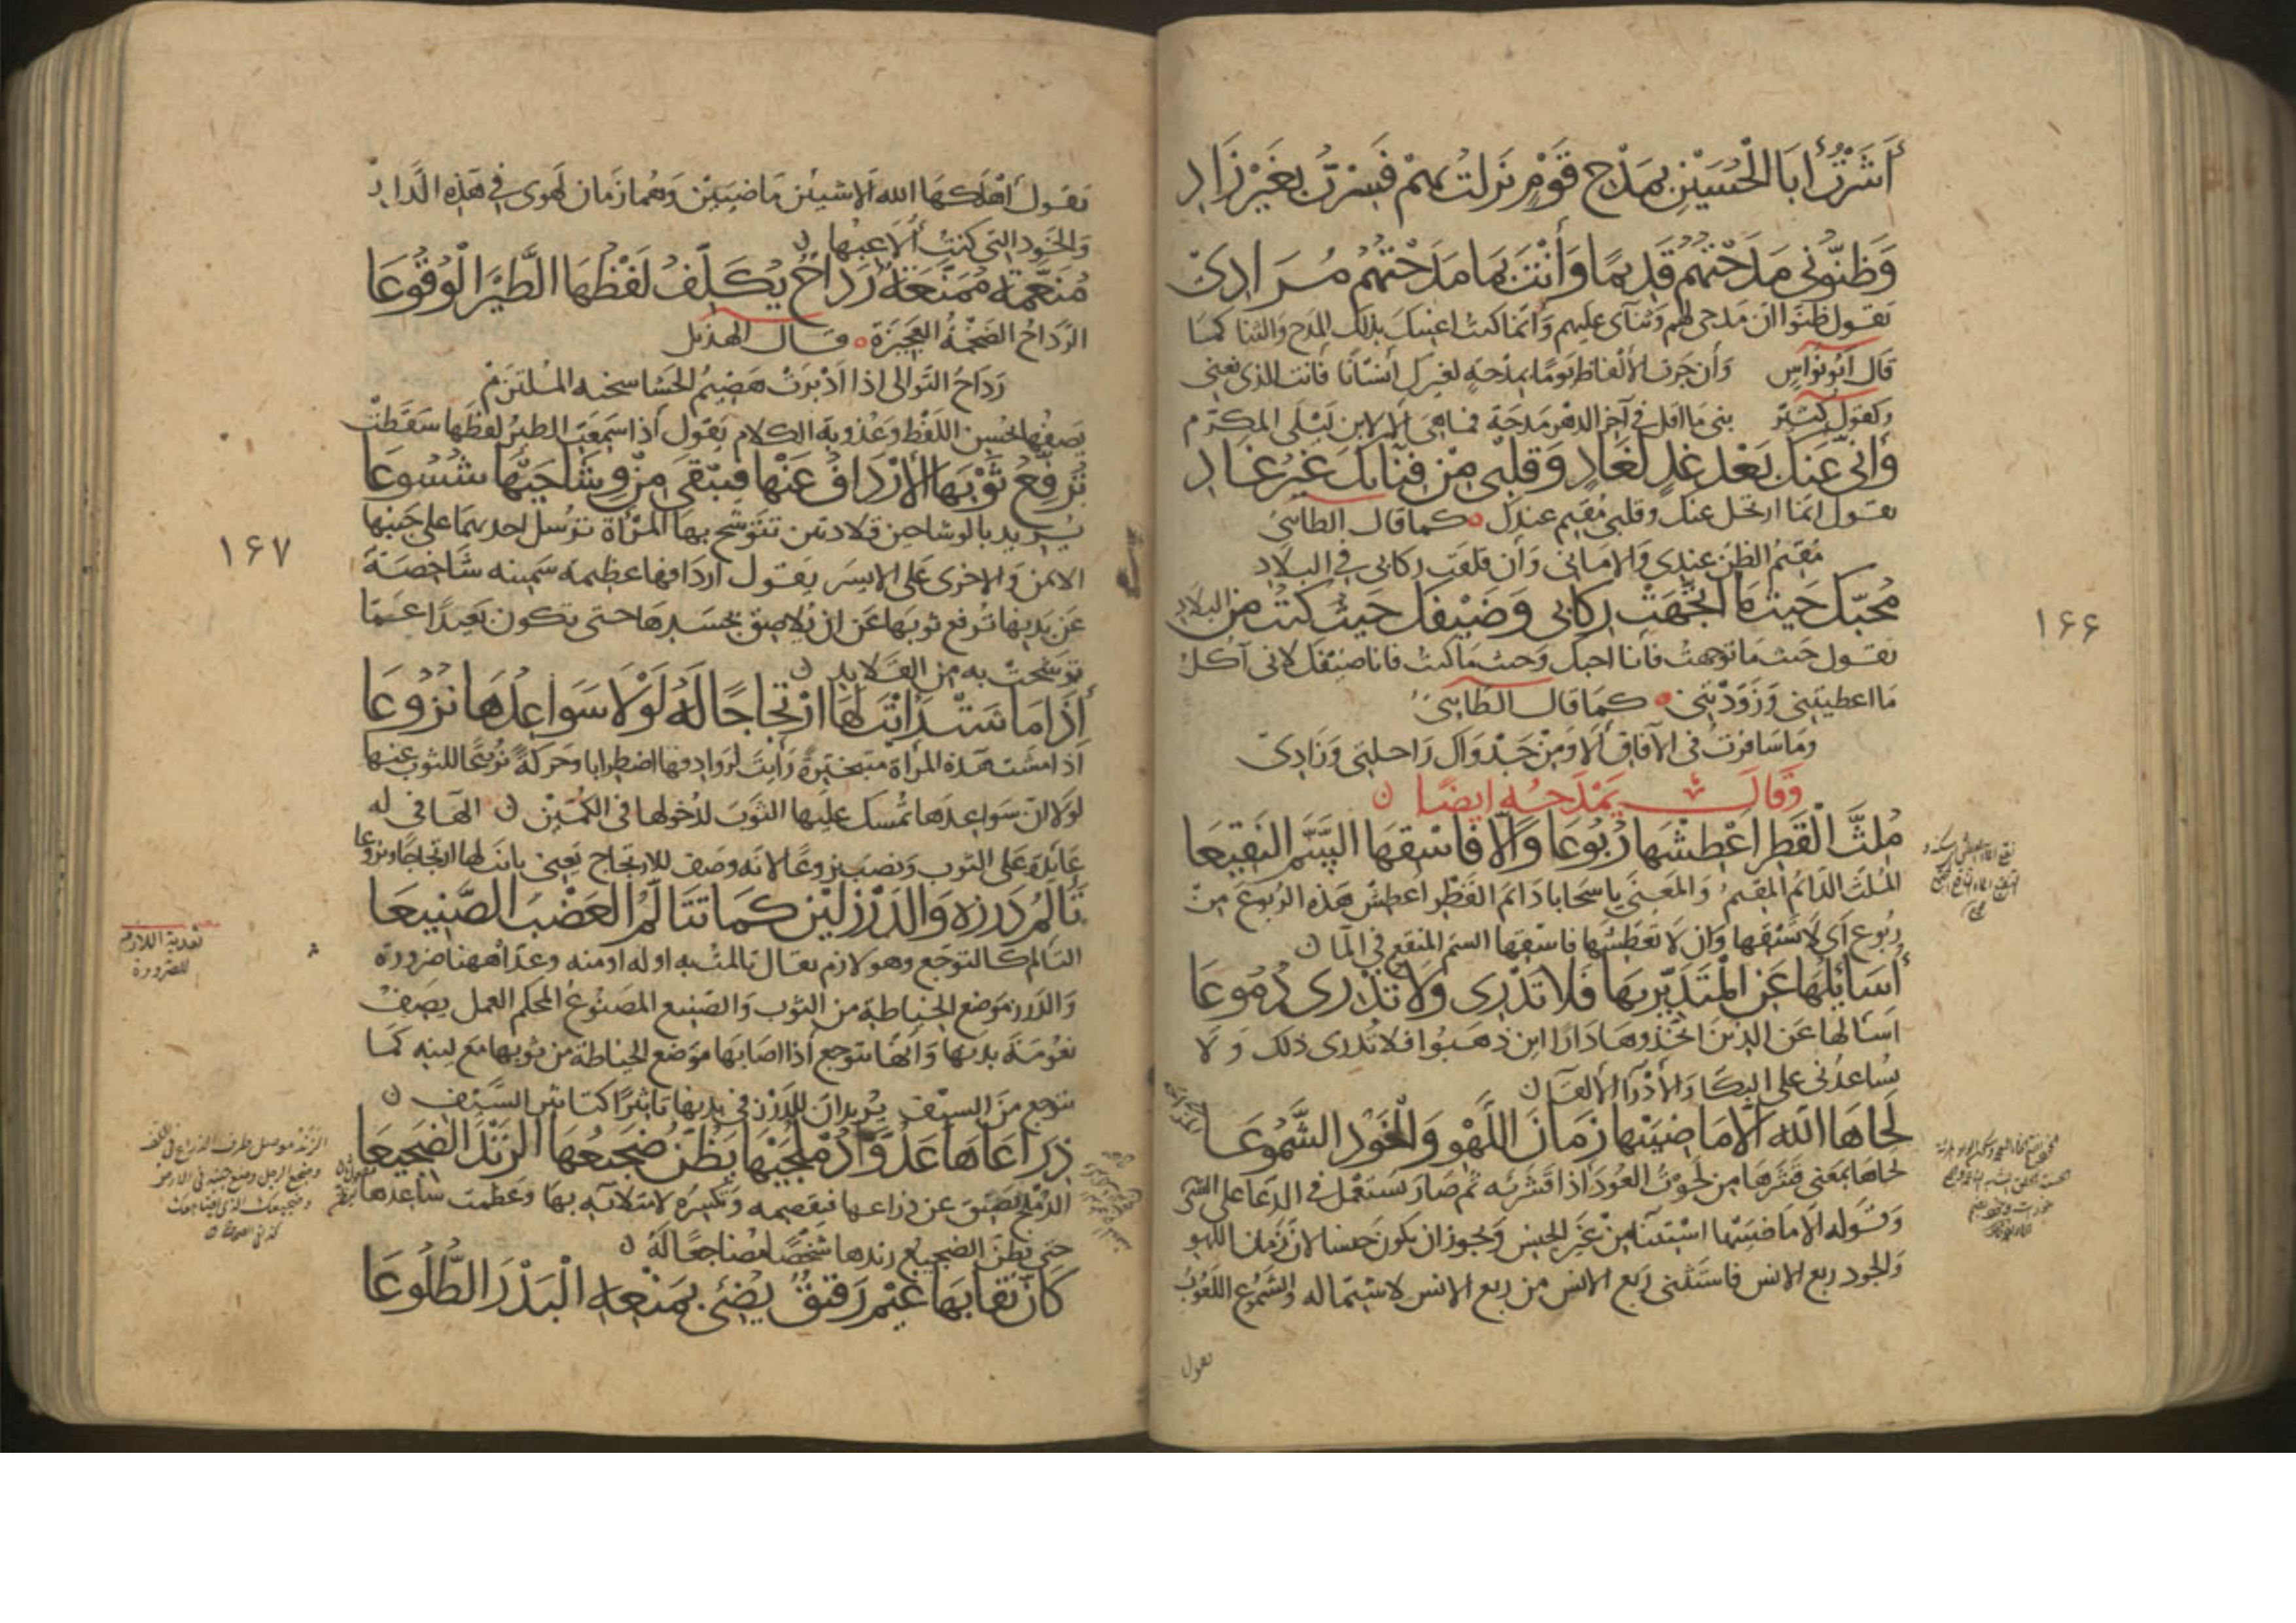 أَشَرْتُ أَبَا الْحُسَيْنِ بِمَدْحِ قَوْمٍ نَزَلْتُ بِهِمْ فَسِرْتُ بِغَيْرِ زَادِ
وَظَنُّونِي مَدَحْتُهُمْ قَدِيمًا وَأَنْتَ بِمَا مَدَحْتُهُمْ مُرَادِي
يقول ظنوا ان مدحي لهم وثنآى عليهم وانما كنت اعنيك بذلك المدح والثنا كما
قال ابو نواس وان جرت الالفاظ يوما بمدحة لغيرك انسانا فانت الذى نعنى
وكقول كثير متى ما اقل في آخر الدهر مدحة فما هي الا لابن ليلى المكرم
وَإِنِّي عَنْكَ بَعْدَ غَدٍ لَغَادٍ وَقَلْبِي مِنْ فِنَائِكَ غَيْرُ غَادِ
يقول انما ارتحل عنك وقلبي مقيم عندك كما قال الطائي
مقيم الظن عندي والاماني وان قلقت ركابي في البلاد
مُحِبُّكَ حَيْثُ مَا اتَّجَهَتْ رِكَابِي وَضَيْفُكَ حَيْثُ كُنْتُ مِنَ الْبِلَادِ
يقول حيث ما توجهت فانا احبك وحيث ما كنت فانا ضيفك لاني آكل
ما اعطيتني وزودتني كما قال الطائي
وما سافرت في الآفاق الا ومن جدواك راحلتي وزادي
وَقَالَ يَمْدَحُهُ ايضًا
مُلِثَّ الْقَطْرِ اعْطِشْهَا رُبُوعَا وَإِلَّا فَاسْقِهَا السَّمَّ النَّقِيعَا
الملث الدائم المقيم والمعنى يا سحابا دائم القطر اعطش هذه الربوع من
ربوع اى لا تسقها وان لا تعطشها فاسقها السم المنقع في المآ
أُسَائِلُهَا عَنِ الْمُتَدَيِّرِيهَا فَلَا تَدْرِي وَلَا تُذْرِي دُمُوعَا
اسالها عن الذين اتخذوها دارا اين ذهبوا فلا تدرى ذلك ولا
تساعدنى على البكا والاذرآ الالقآ
لَحَاهَا اللّٰهُ إِلَّا مَاضِيَيْهَا زَمَانَ اللَّهْوِ وَالْخَوْدَ الشَّمُوعَا
لحاها بمعنى قشرها من لحوت العود اذا قشرته ثم صار يستعمل في الدعا على الشي
وقوله الا ماضييها استثنآ من غير الجنس ويجوز ان يكون جنسا لان زمان اللهو
والخود ربع الانس فاستثنى ربع الانس من ربع الانس لاشتماله والشموع اللعوب
يقول
١٦٦
يقول اهلكها الله الا شيئين ماضيين وهما زمان لهوى في هذه الدار
والخود التى كنت ألاعبها
مُنَعَّمَةٌ مُمَنَّعَةٌ رَدَاحٌ يُكَلِّفُ لَفْظُهَا الطَّيْرَ الْوُقُوعَا
الرداح الضخمة العجيزة وقال الهذلي
رداح التوالى اذا ادبرت هضيم الحشا سخنه الملتزم
يصفها بحسن اللفظ وعذوبة الكلام يقول اذا سمعت الطير لفظها سقطت
تُرَفِّعُ ثَوْبَهَا الْأَرْدَافُ عَنْهَا فَيَبْقَى مِنْ وِشَاحَيْهَا شَسُوعَا
يريد بالوشاحين قلادتين تتوشح بهما المرأة ترسل احديهما على جنبها
الايمن والاخرى على الايسر يقول اردافها عظيمة سمينه شاخصة
عن بدنها ترفع ثوبها عن ان يلاصق جسدها حتى تكون بعيدا عما
توشحت به من القلايد
إِذَا مَا سَتْ رَأَيْتَ لَهَا ارْتِجَاجًا لَهُ لَوْلَا سَوَاعِدُهَا نَزُوعَا
اذا مشت هذه المرأة متبخترة رأيت لروادفها اضطرابا وحركة نزوعا للثوب عنها
لولا ان سواعدها تمسك عليها الثوب لدخولها في الكمين الهآ في له
عائدة على الثوب ونصب نزوعا لانه وصف للارتجاج يعنى رأيت لها ارتجاجا ونزوعا
تَأَلَّمُ دَرْزَهُ وَالدَّرْزُ لَيْنٌ كَمَا تَتَأَلَّمُ الْعَضْبَ الصَّنِيعَا
التالم كالتوجع وهو لازم يقال تالمت به او له او منه وعداه ههنا ضرورة
والدرز موضع الخياطة من الثوب والصنيع المصنوع المحكم العمل يصف
نعومة بدنها وانها تتوجع اذا اصابها موضع الخياطة من ثوبها مع لينه كما
تتوجع من السيف يريد ان للدرز في بدنها تاثيرا كتاثير السيف
ذِرَاعَاهَا عَدُوَّا دُمْلُجَيْهَا يَظُنُّ ضَجِيعُهَا الزَّنْدَ الضَّجِيعَا
الدملج يضيق عن ذراعها فيفصمه وتكسره لامتلائه بها وعظمت ساعدها
حتى يظن الضجيع زندها شخصا مضاجعا له
كَأَنَّ نِقَابَهَا غَيْمٌ رَقِيقٌ يُضِيءُ بِمَنْعِهِ الْبَدْرَ الطُّلُوعَا
١٦٧
تعدية اللازم
للضرورة
الزند موصل طرف الذراع في الكف
وضجع الرجل وضع جنبه في الارض
وضجيعك الذى يضاجعك